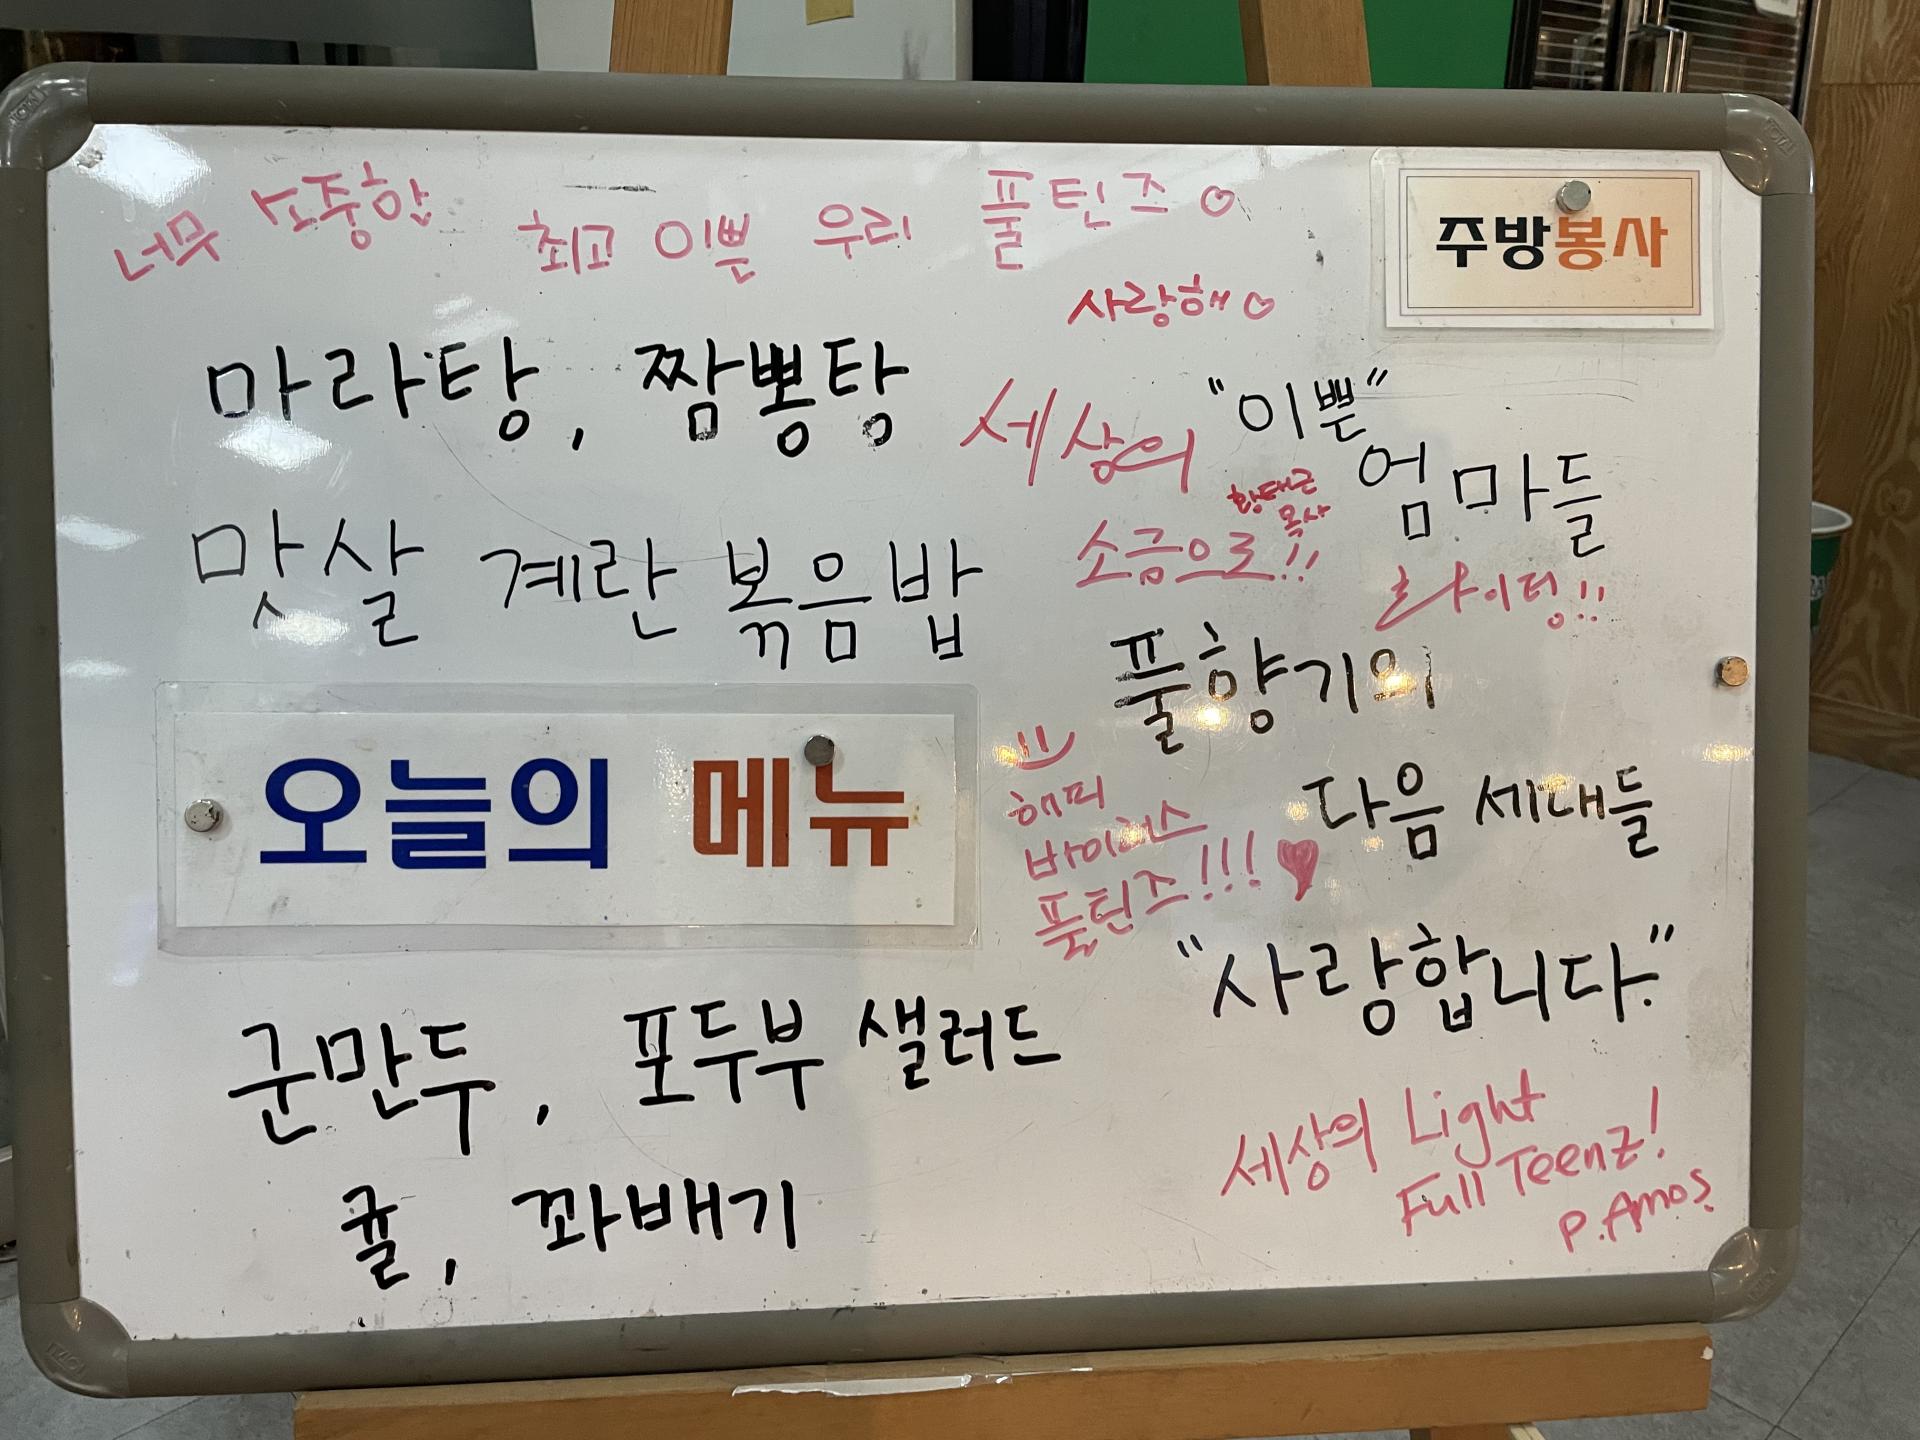 너무 소중한 최고 이쁜 우리 풀틴즈
사랑해
주방봉사
마라탕, 짬뽕탕
맛살 계란 볶음밥
오늘의 메뉴
군만두, 포두부 샐러드
귤, 꽈배기
"이쁜"
엄마들
풀향기의
다음 세대들
"사랑합니다."
세상의
소금으로!!
황태근
목사
화이팅!!
해피
바이러스
풀틴즈!!!
세상의 Light
Full Teenz!
P.Amos